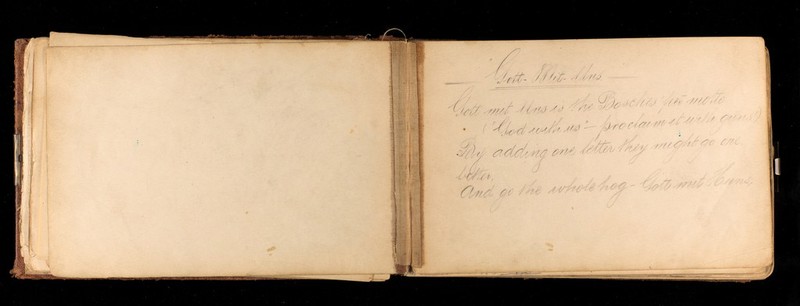 Gott Mit Uns
Gott mit Uns is the Bosches' motto
("God with us" - proclaim it with guns!)
By adding one letter they might go one
better,
And go the whole hog - Gott mit